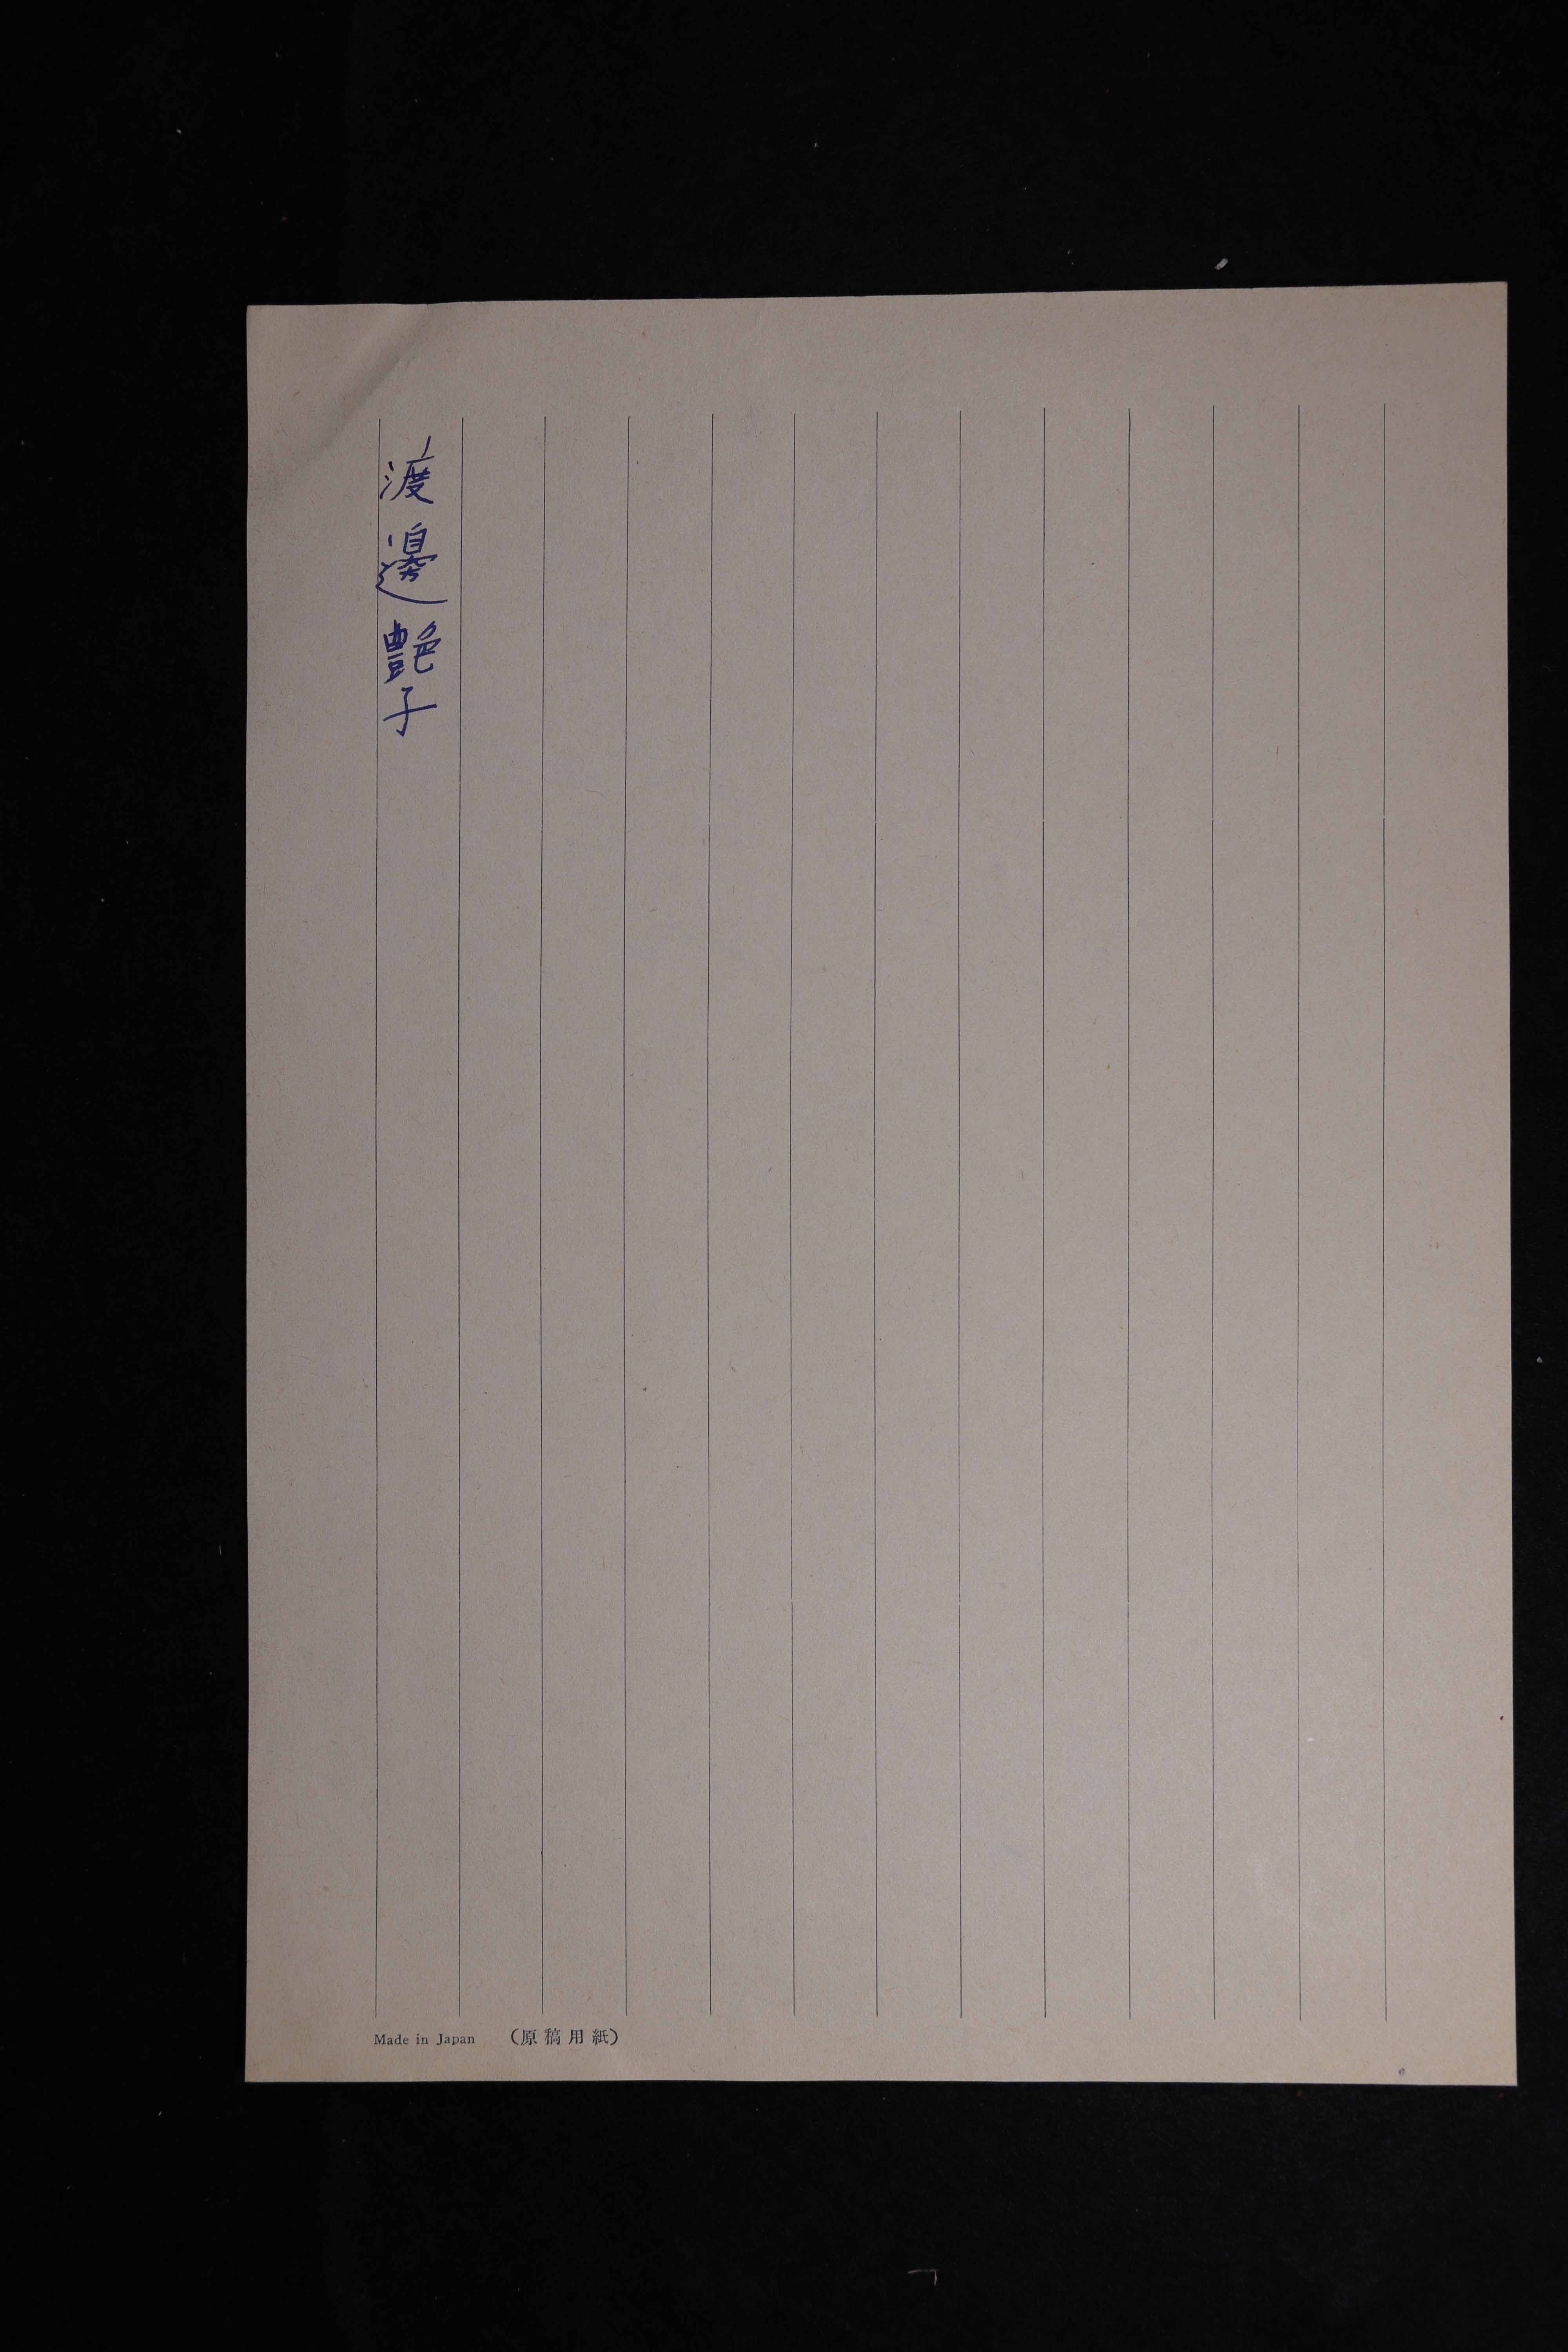 渡邊艶子
Made in Japan （原稿用紙）